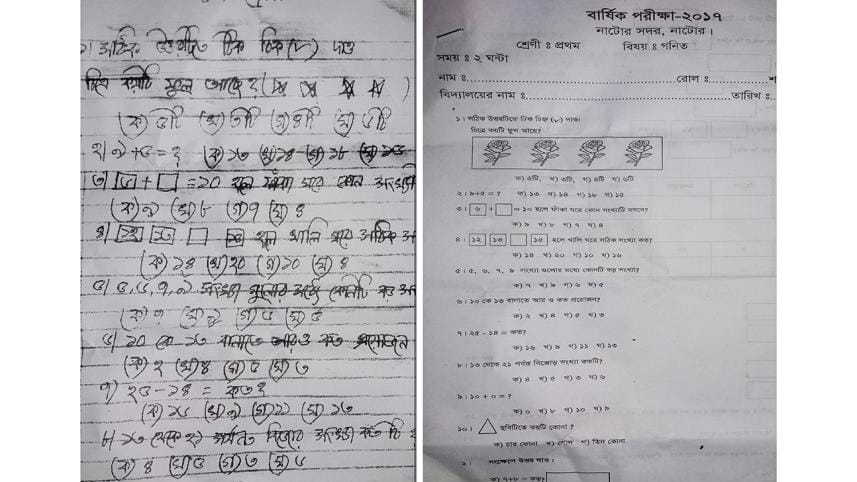 ১। সঠিক উত্তরটিতে টিক চিহ্ন (✓) দাও
চিত্রে কয়টি ফুল আছে?
(ক) ৫টি (খ) ৩টি (গ) ৪টি (ঘ) ৬টি
২) ৯+৫ = ? (ক) ১৩ (খ) ১৪ (গ) ১৮ (ঘ) ১৫
৩) ৬ + = ১০ হলে ফাঁকা ঘরে কোন সংখ্যাটি
(ক) ৯ (খ) ৮ (গ) ৭ (ঘ) ৪
৪) ১২ ১৩ ১৫ হলে খালি ঘরে সঠিক
(ক) ১৪ (খ) ২০ (গ) ১০ (ঘ)
৫) ৫, ৬, ৭, ৯ সংখ্যা গুলোর মধ্যে কোনটি বড়
(ক) ৭ (খ) ৯ (গ) ৬ (ঘ) ৫
৬) ১০ কে ১৩ বানাতে আরও কত প্রয়োজন
(ক) ২ (খ) ৪ (গ) ৫ (ঘ) ৩
৭) ২৫-১৪ = কত?
(ক) ১৬ (খ) ৯ (গ) ১১ (ঘ) ১৩
৮) ১৩ থেকে ২১ পর্যন্ত বিজোড় সংখ্যা কত টি
(ক) ৪ (খ) ৫ (গ) ৩ (ঘ) ৬
বার্ষিক পরীক্ষা-২০১৭
নাটোর সদর, নাটোর।
শ্রেণী ঃ প্রথম বিষয় ঃ গনিত
সময় ঃ ২ ঘন্টা
নাম ঃ রোল ঃ
বিদ্যালয়ের নাম ঃ তারিখ ঃ
১। সঠিক উত্তরটিতে টিক চিহ্ন (✓) দাও।
চিত্রে কয়টি ফুল আছে?
ক) ৫টি, খ) ৩টি, গ) ৪টি ঘ) ৬টি
২। ৯+৫ = ? ক) ১৩ খ) ১৪ গ) ১৮ ঘ) ১৫
৩। ৬ + = ১০ হলে ফাঁকা ঘরে কোন সংখ্যাটি বসবে?
ক) ৯ খ) ৮ গ) ৭ ঘ) ৪
৪। ১২ ১৩ ১৫ হলে খালি ঘরে সঠিক সংখ্যা কত?
ক) ১৪ খ) ২০ গ) ১০ ঘ) ১৬
৫। ৫, ৬, ৭, ৯ সংখ্যা গুলোর মধ্যে কোনটি বড় সংখ্যা?
ক) ৭ খ) ৯ গ) ৬ ঘ) ৫
৬। ১০ কে ১৩ বানাতে আর ও কত প্রয়োজন?
ক) ২ খ) ৪ গ) ৫ ঘ) ৩
৭। ২৫ - ১৪ = কত?
ক) ১৬ খ) ৯ গ) ১১ ঘ) ১৩
৮। ১৩ থেকে ২১ পর্যন্ত বিজোড় সংখ্যা কতটি?
ক) ৪ খ) ৫ গ) ৩ ঘ) ৬
৯। ১০ + ০ = ?
ক) ০ খ) ৮ গ) ১০ ঘ) ৯
১০। ছবিটিতে কয়টি কোনা ?
ক) চার কোনা খ) গোল গ) তিন কোনা
২। সংক্ষেপে উত্তর দাও :
ক) ৭+৮ = কত?